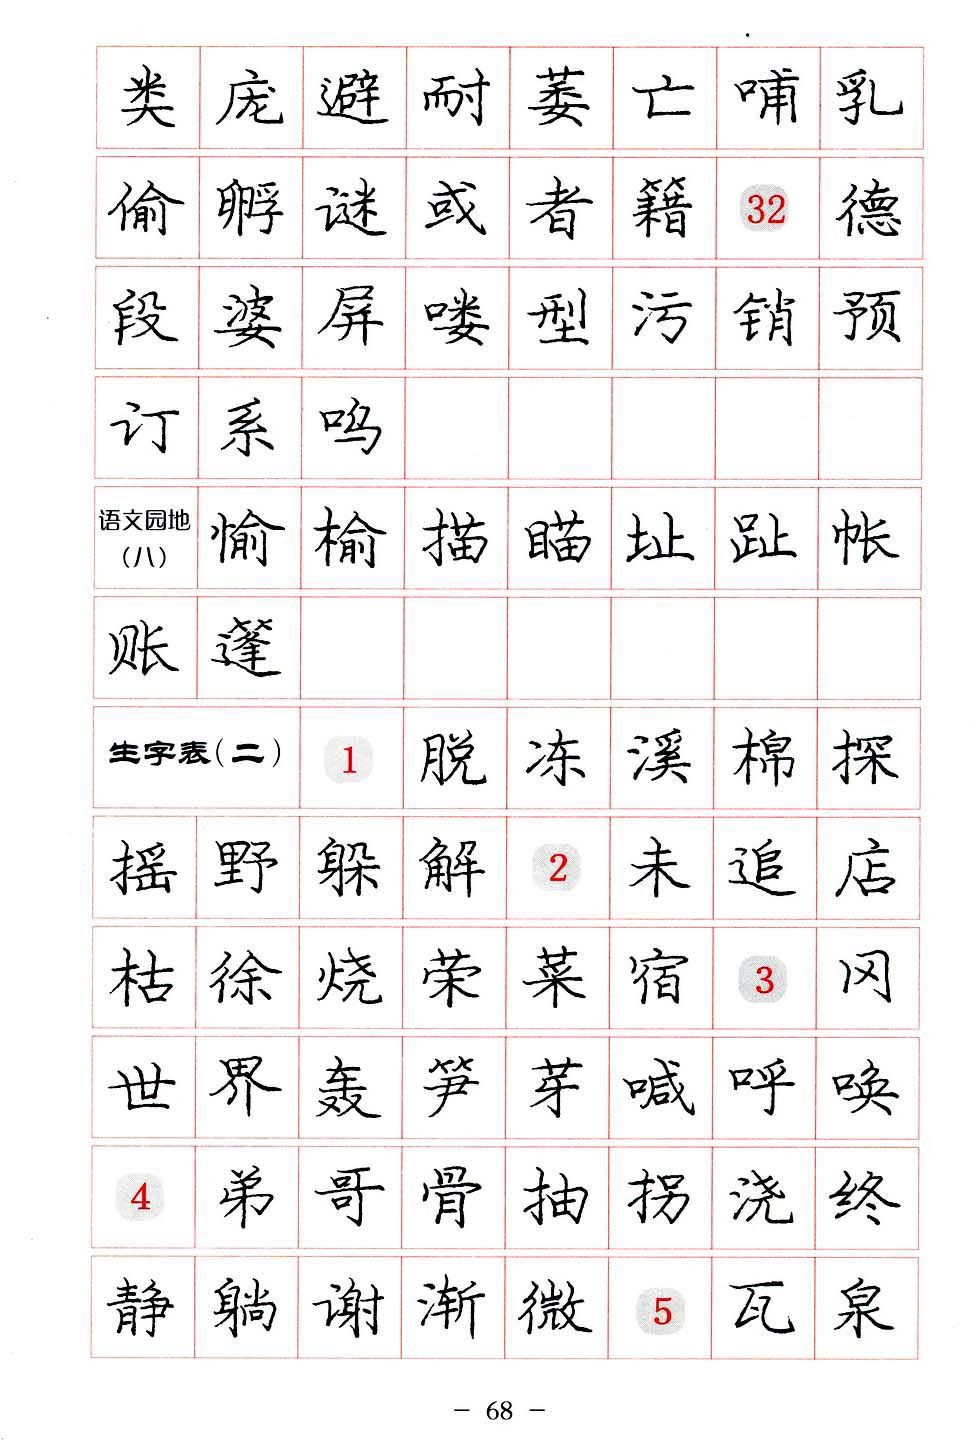 类 庞 避 耐 萎 亡 哺 乳
偷 孵 谜 或 者 籍 32 德
段 婆 屏 喽 型 污 销 预
订 系 呜
语文园地（八） 愉 榆 描 瞄 址 趾 帐
账 蓬
生字表（二） 1 脱 冻 溪 棉 探
摇 野 躲 解 2 未 追 店
枯 徐 烧 荣 菜 宿 3 冈
世 界 轰 笋 芽 喊 呼 唤
4 弟 哥 骨 抽 拐 浇 终
静 躺 谢 渐 微 5 瓦 泉
– 68 –